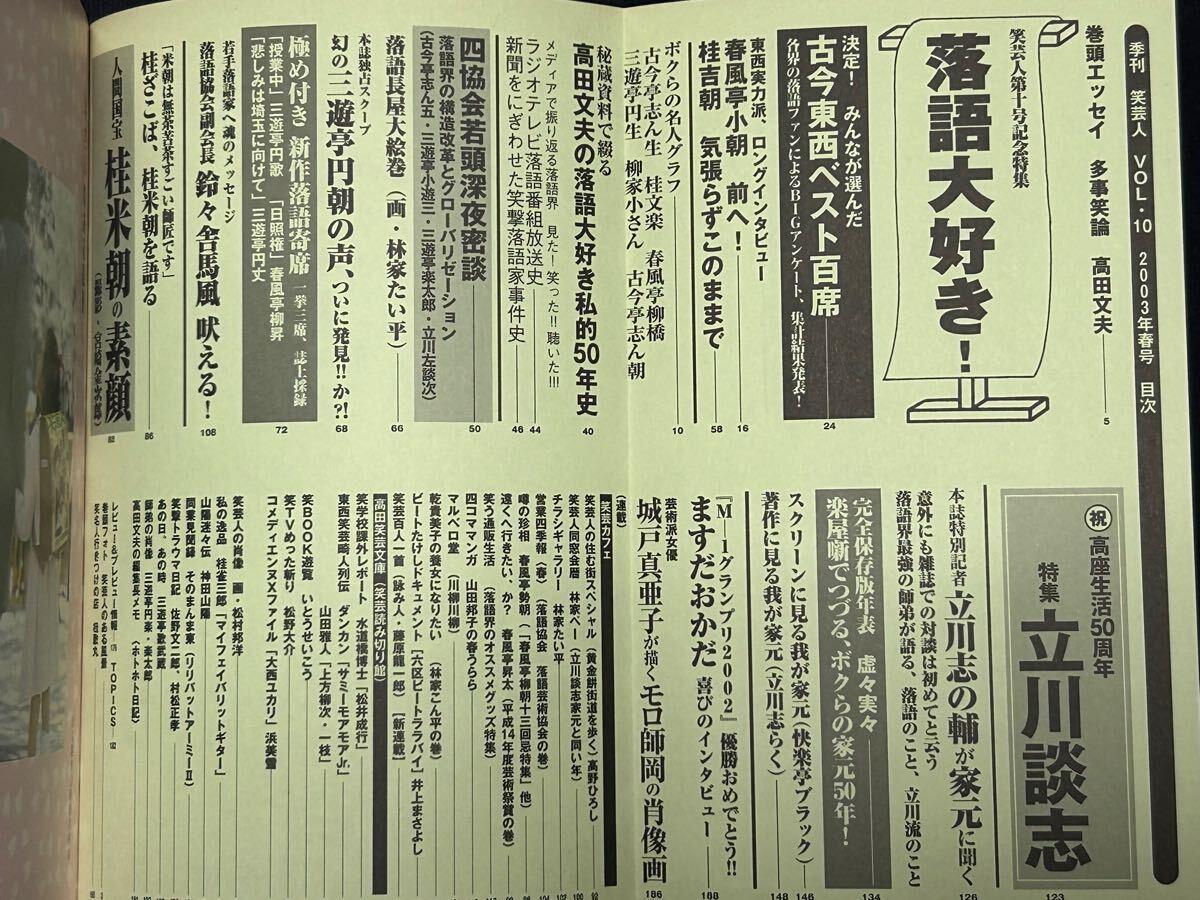 季刊 笑芸人 VOL・10 2003年春号 目次
巻頭エッセイ 多事笑論 高田文夫 5
笑芸人第十号記念特集
落語大好き!
決定! みんなが選んだ
古今東西ベスト百席 24
各界の落語ファンによるBIGアンケート、集計結果発表!
東西実力派、ロングインタビュー
春風亭小朝 前へ! 16
桂吉朝 気張らずこのままで 58
ボクらの名人グラフ 10
古今亭志ん生 桂文楽 春風亭柳橋
三遊亭円生 柳家小さん 古今亭志ん朝
秘蔵資料で綴る
高田文夫の落語大好き私的50年史 40
メディアで振り返る落語界 見た!笑った!!聴いた!!!
ラジオテレビ落語番組放送史 44
新聞をにぎわせた笑撃落語家事件史 46
四協会若頭深夜密談 50
落語界の構造改革とグローバリゼーション
(古今亭志ん五・三遊亭小遊三・三遊亭楽太郎・立川左談次)
落語長屋大絵巻(画・林家たい平) 66
本誌独占スクープ
幻の三遊亭円朝の声、ついに発見!!か?! 68
極め付き 新作落語寄席 一挙三席、誌上採録 72
「授業中」三遊亭円歌 「日照権」春風亭柳昇
「悲しみは埼玉に向けて」三遊亭円丈
若手落語家へ魂のメッセージ
落語協会副会長 鈴々舎馬風 吠える! 108
「米朝は無茶苦茶すごい師匠です」
桂ざこば、桂米朝を語る 86
人間国宝 桂米朝の素顔 88
祝 高座生活50周年
特集 立川談志 123
本誌特別記者 立川志の輔が家元に聞く 126
意外にも雑誌での対談は初めてと云う
落語界最強の師弟が語る、落語のこと、立川流のこと
完全保存版年表 虚々実々
楽屋噺でつづる、ボクらの家元50年! 134
スクリーンに見る我が家元(快楽亭ブラック) 146
著作に見る我が家元(立川志らく) 148
『M-1グランプリ2002』優勝おめでとう!!
ますだおかだ 喜びのインタビュー 188
芸術派女優
城戸真亜子が描くモロ師岡の肖像画 186
(連載)
笑芸カフェ
笑芸人の住む街スペシャル(黄金餅街道を歩く)高野ひろし 92
笑芸人同窓会暦 林家ぺー(立川談志家元と同い年) 100
チラシギャラリー 林家たい平 102
営業四季報(春)(落語協会 落語芸術協会の巻) 104
噂の珍相 春風亭勢朝(「春風亭柳朝十三回忌特集」他)
遠くへ行きたい、か? 春風亭昇太(平成14年度芸術祭賞の巻)
笑う通販生活(落語界のオススメグッズ特集)
四コママンガ 山田邦子の春うらら
マルベロ堂(川柳川柳)
乾貴美子の養女になりたい(林家こん平の巻)
ビートたけしドキュメント[六区ビートララバイ]井上まさよし
笑芸百人一首(詠み人・藤原龍一郎)[新連載]
高田笑芸文庫(笑芸読み切り館)
笑学校課外レポート 水道橋博士「松井成行」
東西笑芸畸人列伝 ダンカン「サミーモアモアJr.」
山田雅人「上方柳次・一枝」
笑BOOK遊覧 いとうせいこう
笑TVめった斬り 松野大介
コメディエンヌファイル「大西ユカリ」浜美雪
笑芸人の肖像 画・松村邦洋
私の逸品 桂雀三郎「マイフェイバリットギター」
山陽迷々伝 神田山陽
同業見聞録 そのまんま東(リリパットアーミーII)
笑撃トラウマ日記 佐野文二郎、村松正孝
あの日、あの時 三遊亭歌武蔵
師弟の肖像 三遊亭円楽・楽太郎
高田文夫の編集長メモ (ホホト日記)
レビュー&プレビュー情報 175 TOPICS 182
巻頭フォト 笑芸人のある風景